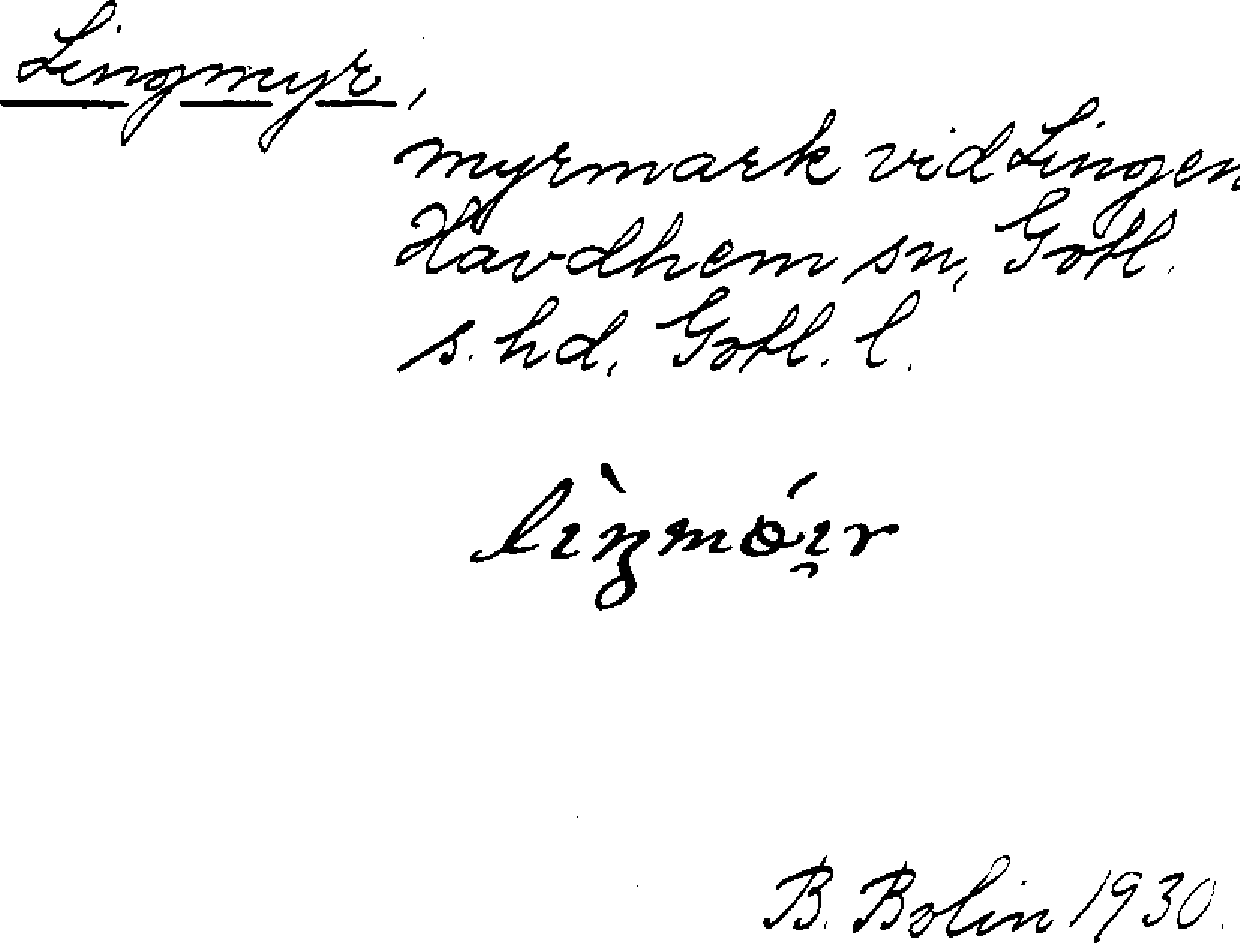 Lingmyr,
myrmark vid Lingen
Havdhem sn, Gotl.
s. hd, Gotl. l.
B. Bolin 1930.